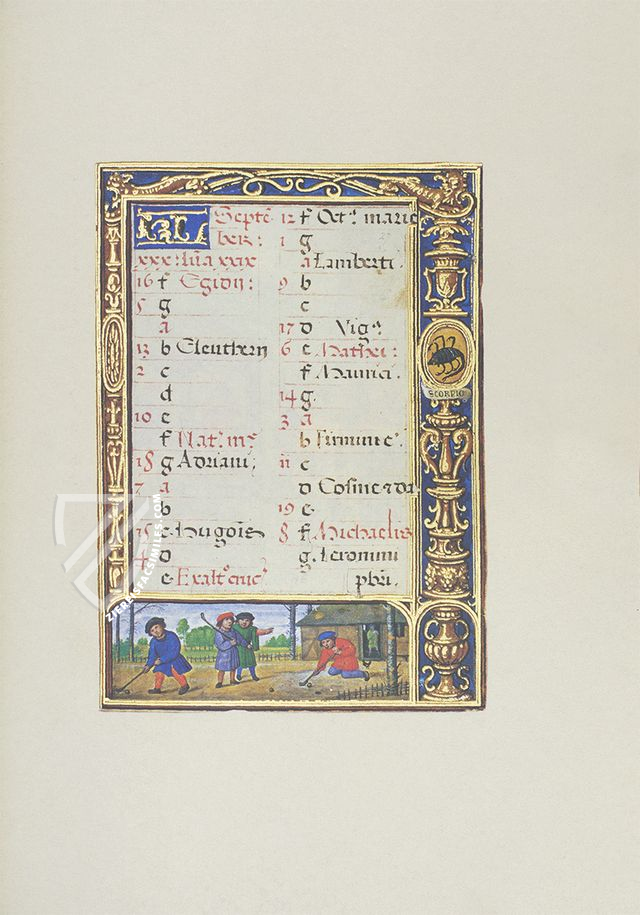 KL Septē
ber:
xxx: lūa xxix
16 f Egidij:
5 g
a
13 b Eleutherij
2 c
d
10 e
f Nat.ͤ m.ͤ
18 g Adriani;
7 a
b
15 c Hugois
4 d
e Exalt.ͦ cruc.ͥ
12 f Oct.ͣ marie
1 g
a Lamberti.
9 b
c
17 d Vig.ͣ
6 e Mathei:
f Maurici.
14 g.
3 a
b
11 c
d Cosme
19 e.
8 f Michaelis
g. Ieronimi
pbri.
SCORPIO
ZIEREU FACSIMILES.COM